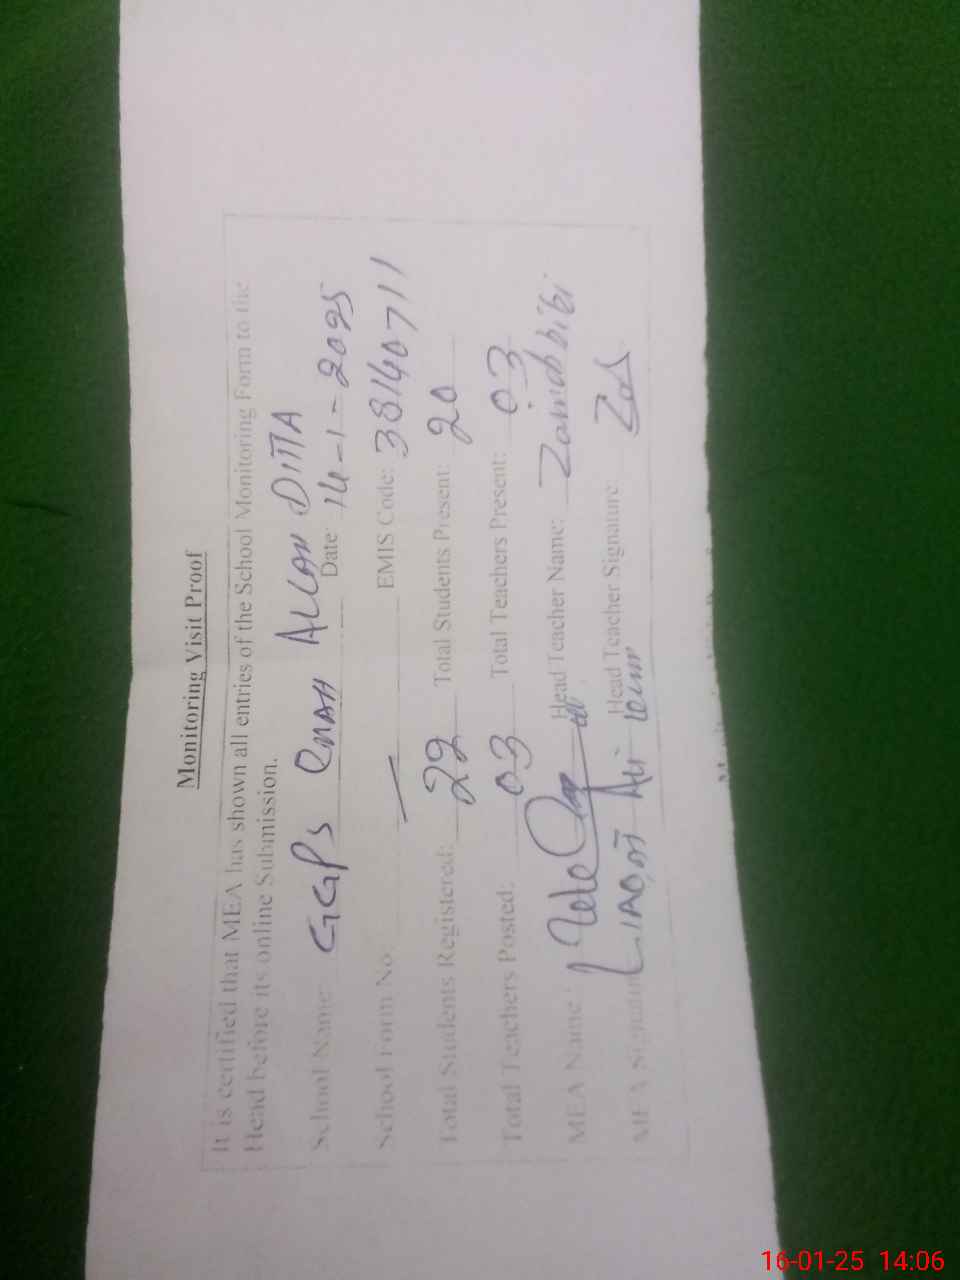 Monitoring Visit Proof
It is certified that MEA has shown all entries of the School Monitoring Form to the
Head before its online Submission.
School Name: GGPS QNAH ALLAH DITTA
Date: 14-1-2025
School Form No. — EMIS Code: 38140711
Total Students Registered: 29 Total Students Present: 20
Total Teachers Posted: 03 Total Teachers Present: 03
MEA Name: Head Teacher Name: Zainab bibi
MEA Signature LIAQAT Ali Head Teacher Signature:
16-01-25 14:06